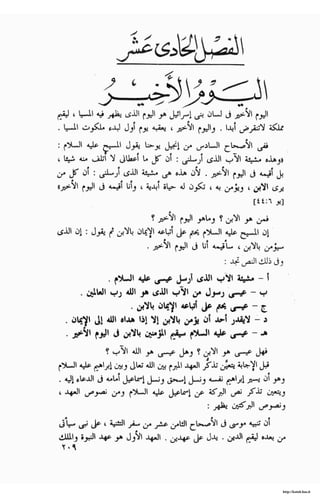 الفصل الحادى عشر
اليوم الأخير
اليوم الأخير فى لسان بنى إسرائيل هو اليوم الذى يظهر فيه المسيا ، ليقيم
مملكة لاتنقرض أبدا . واليوم الأخير ، يعقبه يوم أول لبدء ملكوت المسيا .
ففى الأصحاح السادس من إنجيل يوحنا يقول المسيح عليه السلام :
«وهذه مشيئة الآب الذى أرسلنى : أن كل ما أعطانى لا أتلف منه شيئا ،
بل أقيمه فى اليوم الأخير . لأن هذه هى مشيئة الذى أرسلنى : أن كل من
يرى الابن ، ويؤمن به ، تكون له حياة أبدية ، وأنا أقيمه فى اليوم الأخير»
[يو ٦ : ٤٤]
فمن هو الابن ؟ وماهو اليوم الأخير ؟
إن المسيح عليه السلام يحتم على أتباعه الإيمان بالابن ثم يقول : إن الذى
سيؤمن بالابن ، سأقيمه أنا فى اليوم الأخير .
وفى ذلك النص نجد :
أ – مشيئة الآب الذى أرسل عيسى عليه السلام .
ب – عيسى رسول من الآب الذى هو الله رب العالمين .
ج – عيسى يحتم على أتباعه الإيمان بالابن .
د – لايقدر أحد أن يؤمن بالابن إلا إذا هداه الله إلى الإيمان .
هـ – عيسى عليه السلام سيقيم المؤمنين بالابن فى اليوم الأخير .
فهل عيسى هو الابن ؟ وهل عيسى هو الله الآب ؟
قبل الإجابة يتعين تذكر العهد المبرم بين الله تعالى وبين إبراهيم عليه السلام
وهو أن يسير إبراهيم نفسه ونسل إسحق ونسل إسماعيل أمامه فى الدعاء إليه .
ويتعين تذكر نص البركة عن إسماعيل عليه السلام ومن نصوص العهد ،
ونصوص البركتين يظهر :
أن تنبيه موسى فى الأصحاح الثامن عشر من سفر التثنية ، على نبى سيأتى
من بعده ليقيم الدين . يدل على عهدين . العهد الأول هو عهد النبوة والملك
٢٠٩